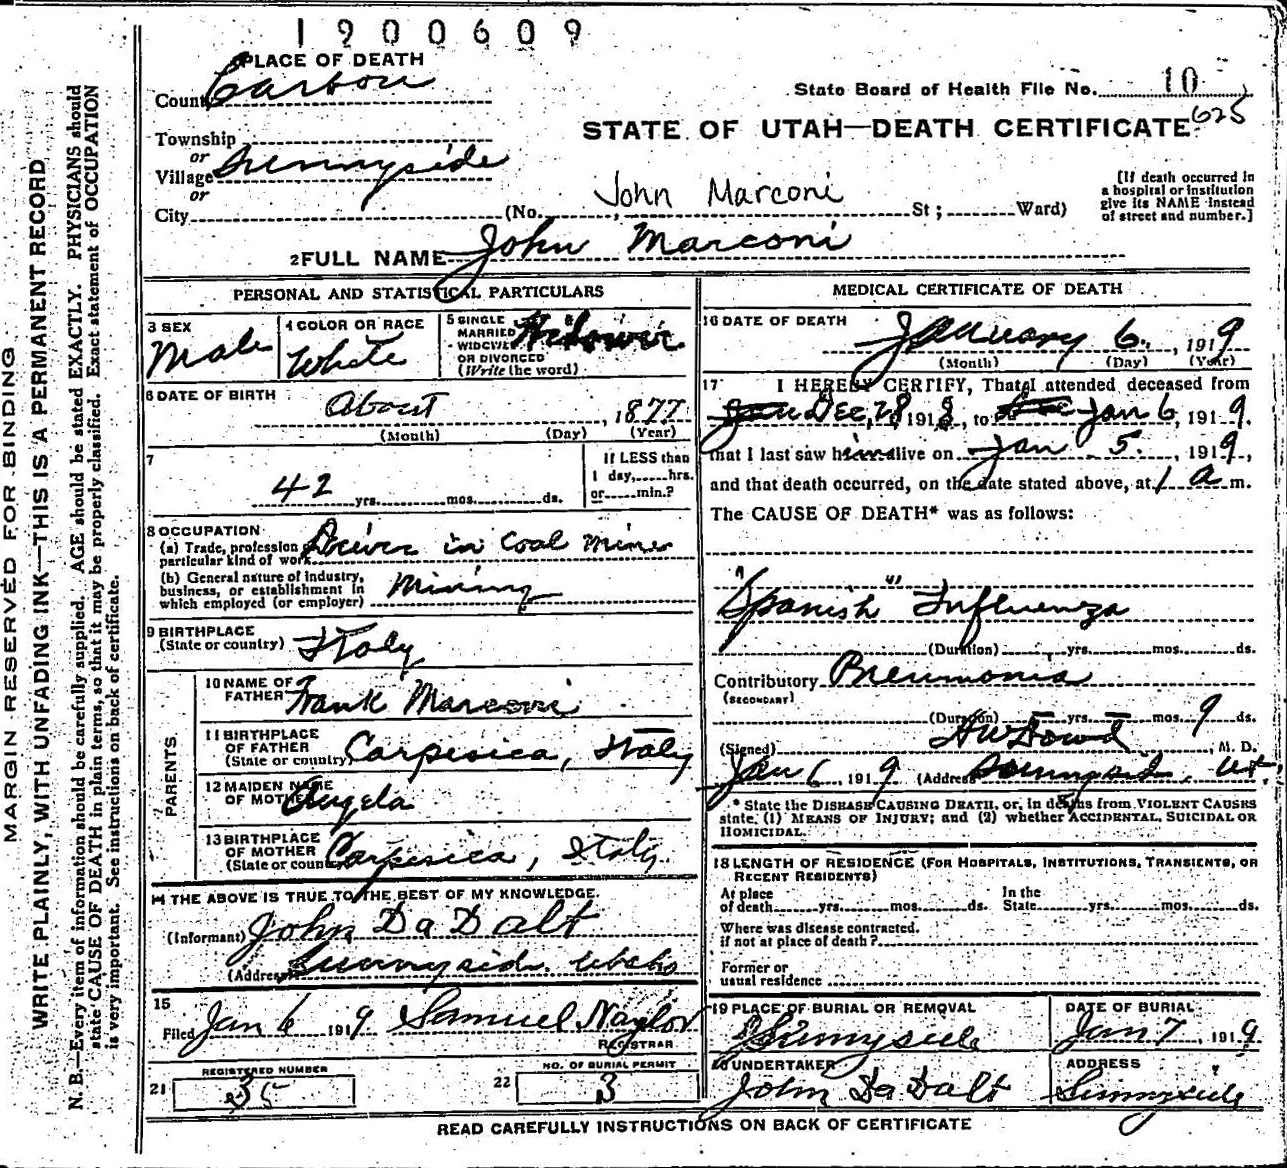 1900609
PLACE OF DEATH
County Carbon
State Board of Health File No. 10
625
STATE OF UTAH—DEATH CERTIFICATE
Township
or
Village Sunnyside
or
City (No. John Marconi St; Ward)
[If death occurred in
a hospital or institution
give its NAME instead
of street and number.]
2 FULL NAME John Marconi
PERSONAL AND STATISTICAL PARTICULARS
3 SEX
Male
4 COLOR OR RACE
White
5 SINGLE
MARRIED
WIDOWED
OR DIVORCED
(Write the word)
Widower
6 DATE OF BIRTH
About , 1877
(Month) (Day) (Year)
7
42 yrs. mos. ds.
If LESS than
1 day, hrs.
or min.?
8 OCCUPATION
(a) Trade, profession
particular kind of work Driver in Coal Mine
(b) General nature of industry,
business, or establishment in
which employed (or employer) Mining
9 BIRTHPLACE
(State or country) Italy
PARENTS
10 NAME OF
FATHER Frank Marconi
11 BIRTHPLACE
OF FATHER
(State or country) Carpesica, Italy
12 MAIDEN NAME
OF MOTHER Angela
13 BIRTHPLACE
OF MOTHER
(State or country) Carpesica, Italy
14 THE ABOVE IS TRUE TO THE BEST OF MY KNOWLEDGE.
(Informant) John DaDalt
(Address) Sunnyside Utah
15
Filed Jan 6 1919 Samuel Naylor
REGISTRAR
REGISTERED NUMBER
21 35
NO. OF BURIAL PERMIT
22 3
MEDICAL CERTIFICATE OF DEATH
16 DATE OF DEATH
January 6. , 1919
(Month) (Day) (Year)
17 I HEREBY CERTIFY, That I attended deceased from
Dec, 28 1918, to Jan 6, 1919.
that I last saw him alive on Jan 5. 1919,
and that death occurred, on the date stated above, at 1 a m.
The CAUSE OF DEATH* was as follows:
"Spanish" Influenza
(Duration) yrs. mos. ds.
Contributory Pneumonia
(SECONDARY)
(Duration) — yrs. — mos. 9 ds.
(Signed) HW Dowd , M. D.
Jan 6 1919 (Address) Sunnyside, Ut.
* State the DISEASE CAUSING DEATH, or, in deaths from VIOLENT CAUSES
state. (1) MEANS OF INJURY; and (2) whether ACCIDENTAL, SUICIDAL OR
HOMICIDAL.
18 LENGTH OF RESIDENCE (FOR HOSPITALS, INSTITUTIONS, TRANSIENTS, OR
RECENT RESIDENTS)
At place
of death yrs. mos. ds.
In the
State yrs. mos. ds.
Where was disease contracted.
if not at place of death?
Former or
usual residence
19 PLACE OF BURIAL OR REMOVAL
Sunnyside
DATE OF BURIAL
Jan 7, 1919
20 UNDERTAKER
John DaDalt
ADDRESS
Sunnyside
READ CAREFULLY INSTRUCTIONS ON BACK OF CERTIFICATE
MARGIN RESERVED FOR BINDING
WRITE PLAINLY, WITH UNFADING INK—THIS IS A PERMANENT RECORD
N. B.—Every item of information should be carefully supplied. AGE should be stated EXACTLY. PHYSICIANS should
state CAUSE OF DEATH in plain terms, so that it may be properly classified. Exact statement of OCCUPATION
is very important. See instructions on back of certificate.